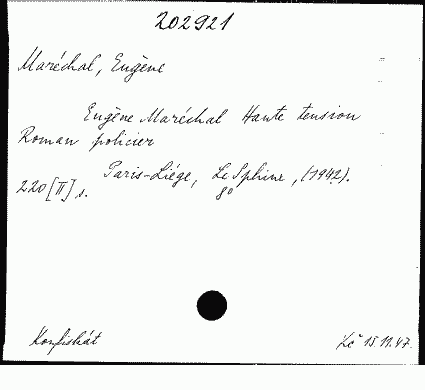 202921
Maréchal, Eugène
Eugène Maréchal Haute tension
Roman policier
Paris-Liége, Le Sphinx, (1942).
220 [II] s. 8°
Konfiskát
Lč 15.11.47.